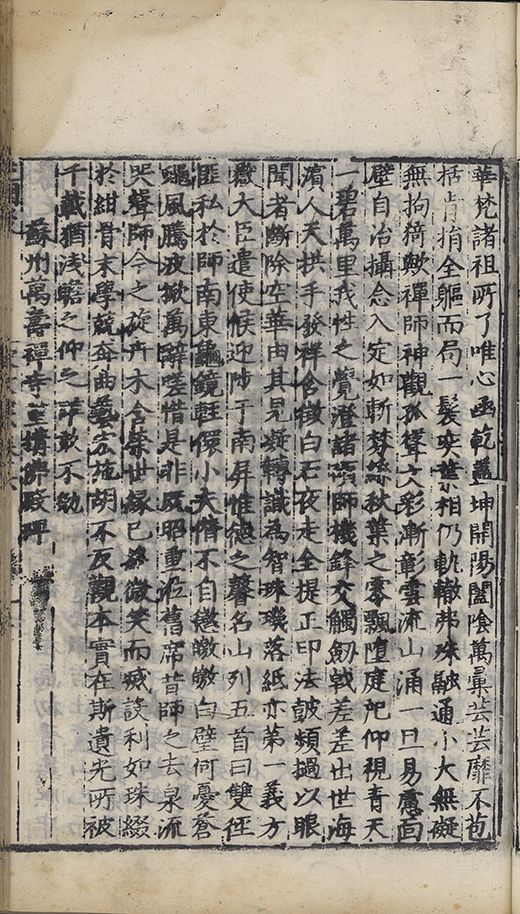 華梵諸祖所了唯心函乾蓋坤開陽闔陰萬彚芸芸靡不苞
括肯捐全軀而局一髮奕葉相仍軌轍弗殊融通小大無礙
無拘猗歟禪師神觀孤聳文彩漸彰雲流山涌一旦易慮面
壁自治攝念入定如斬棼絲秋葉之零飄墮庭戺仰視青天
一碧萬里我性之覺澄諸頌師機鋒交觸劒戟差差出世海
濵人天拱手發祥含徴白石夜走全提正印法皷頻撾以眼
聞者斷除空華由其見凝轉識為智珠璣落紙亦第一義方
嶽大臣遣使候迎陟于南屏惟德之馨名山列五首曰雙徑
匪私於師南東龜鏡輕儇小夫惰不自懲皦皦白璧何憂蒼
蠅風騰波掀萬辟嗟惜是非既昭重涖舊席昔師之去泉流
哭聲師今之旋卉木含榮世緣已畢微笑而滅設利如珠綴
於紺骨末學競奔曲藝宏施胡不反觀本實在斯遺光所被
千載猶淺瞻之仰之詳敢不勉
蘇州萬壽禪寺重搆佛殿碑